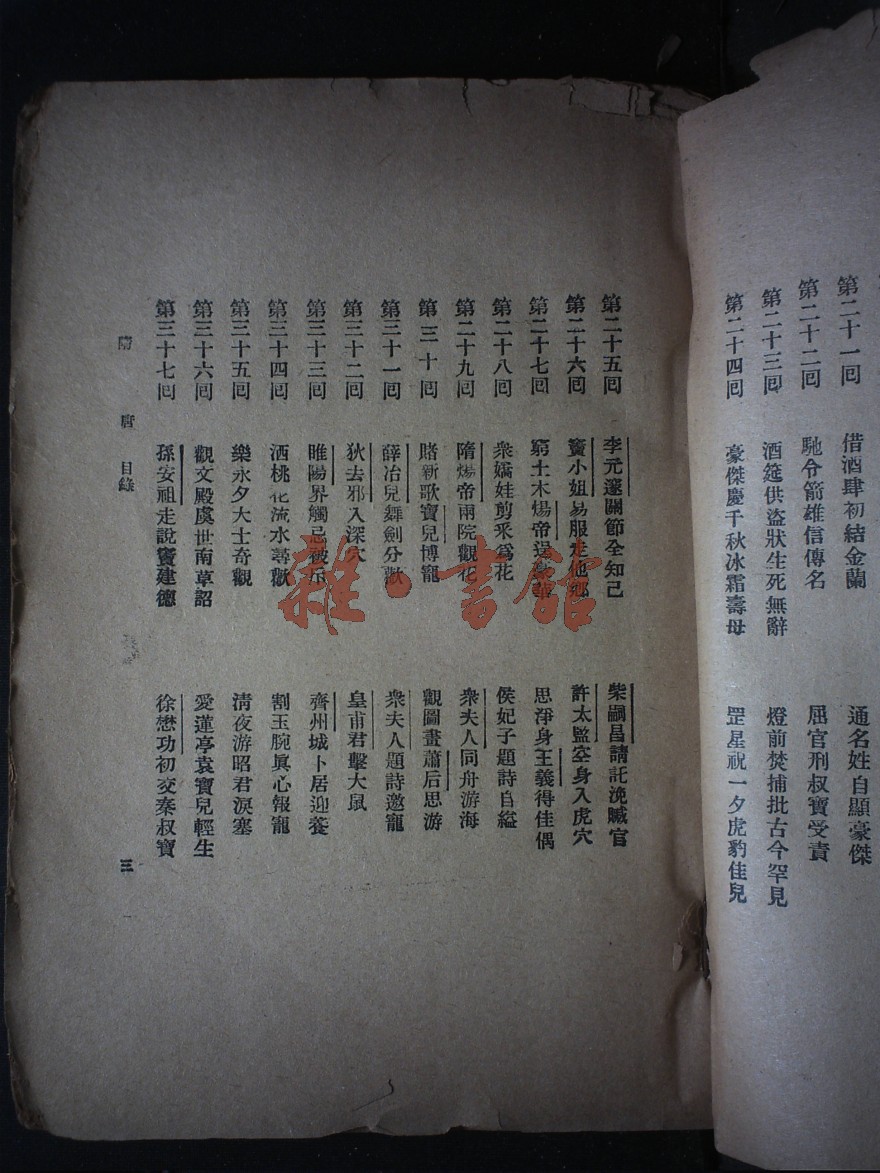 第二十一回 借酒肆初結金蘭 通名姓自顯豪傑
第二十二回 馳令箭雄信傳名 屈官刑叔寶受責
第二十三回 酒筵供盜狀生死無辭 燈前焚捕批古今罕見
第二十四回 豪傑慶千秋冰霜壽母 罡星祝一夕虎豹佳兒
第二十五回 李元邃關節全知己 柴嗣昌請託浼贓官
第二十六回 竇小姐易服走他鄉 許太監空身入虎穴
第二十七回 窮土木煬帝逞豪華 思淨身王義得佳偶
第二十八回 衆嬌娃剪采爲花 侯妃子題詩自縊
第二十九回 隋煬帝兩院觀花 衆夫人同舟游海
第三十回 賭新歌寶兒博寵 觀圖畫蕭后思游
第三十一回 薛冶兒舞劍分歡 衆夫人題詩邀寵
第三十二回 狄去邪入深穴 皇甫君擊大鼠
第三十三回 睢陽界觸忌被斥 齊州城卜居迎養
第三十四回 洒桃花流水尋歡 割玉腕眞心報寵
第三十五回 樂永夕大士奇觀 淸夜游昭君淚塞
第三十六回 觀文殿虞世南草詔 愛蓮亭袁寶兒輕生
第三十七回 孫安祖走說竇建德 徐懋功初交秦叔寶
隋唐 目錄
三
雜·書館